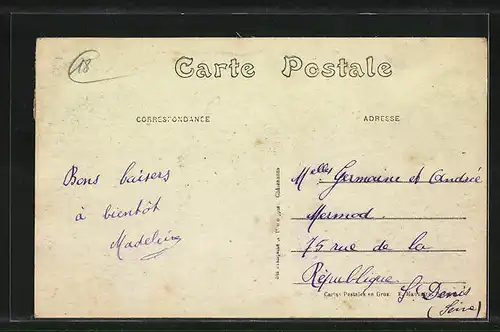 18
Carte Postale
CORRESPONDANCE
ADRESSE
Bons baisers
à bientôt
Madeleine
Melles Germaine et Andrée
Mermod
75 rue de la
République
St Denis
(Seine)
Cartes Postales en Gros